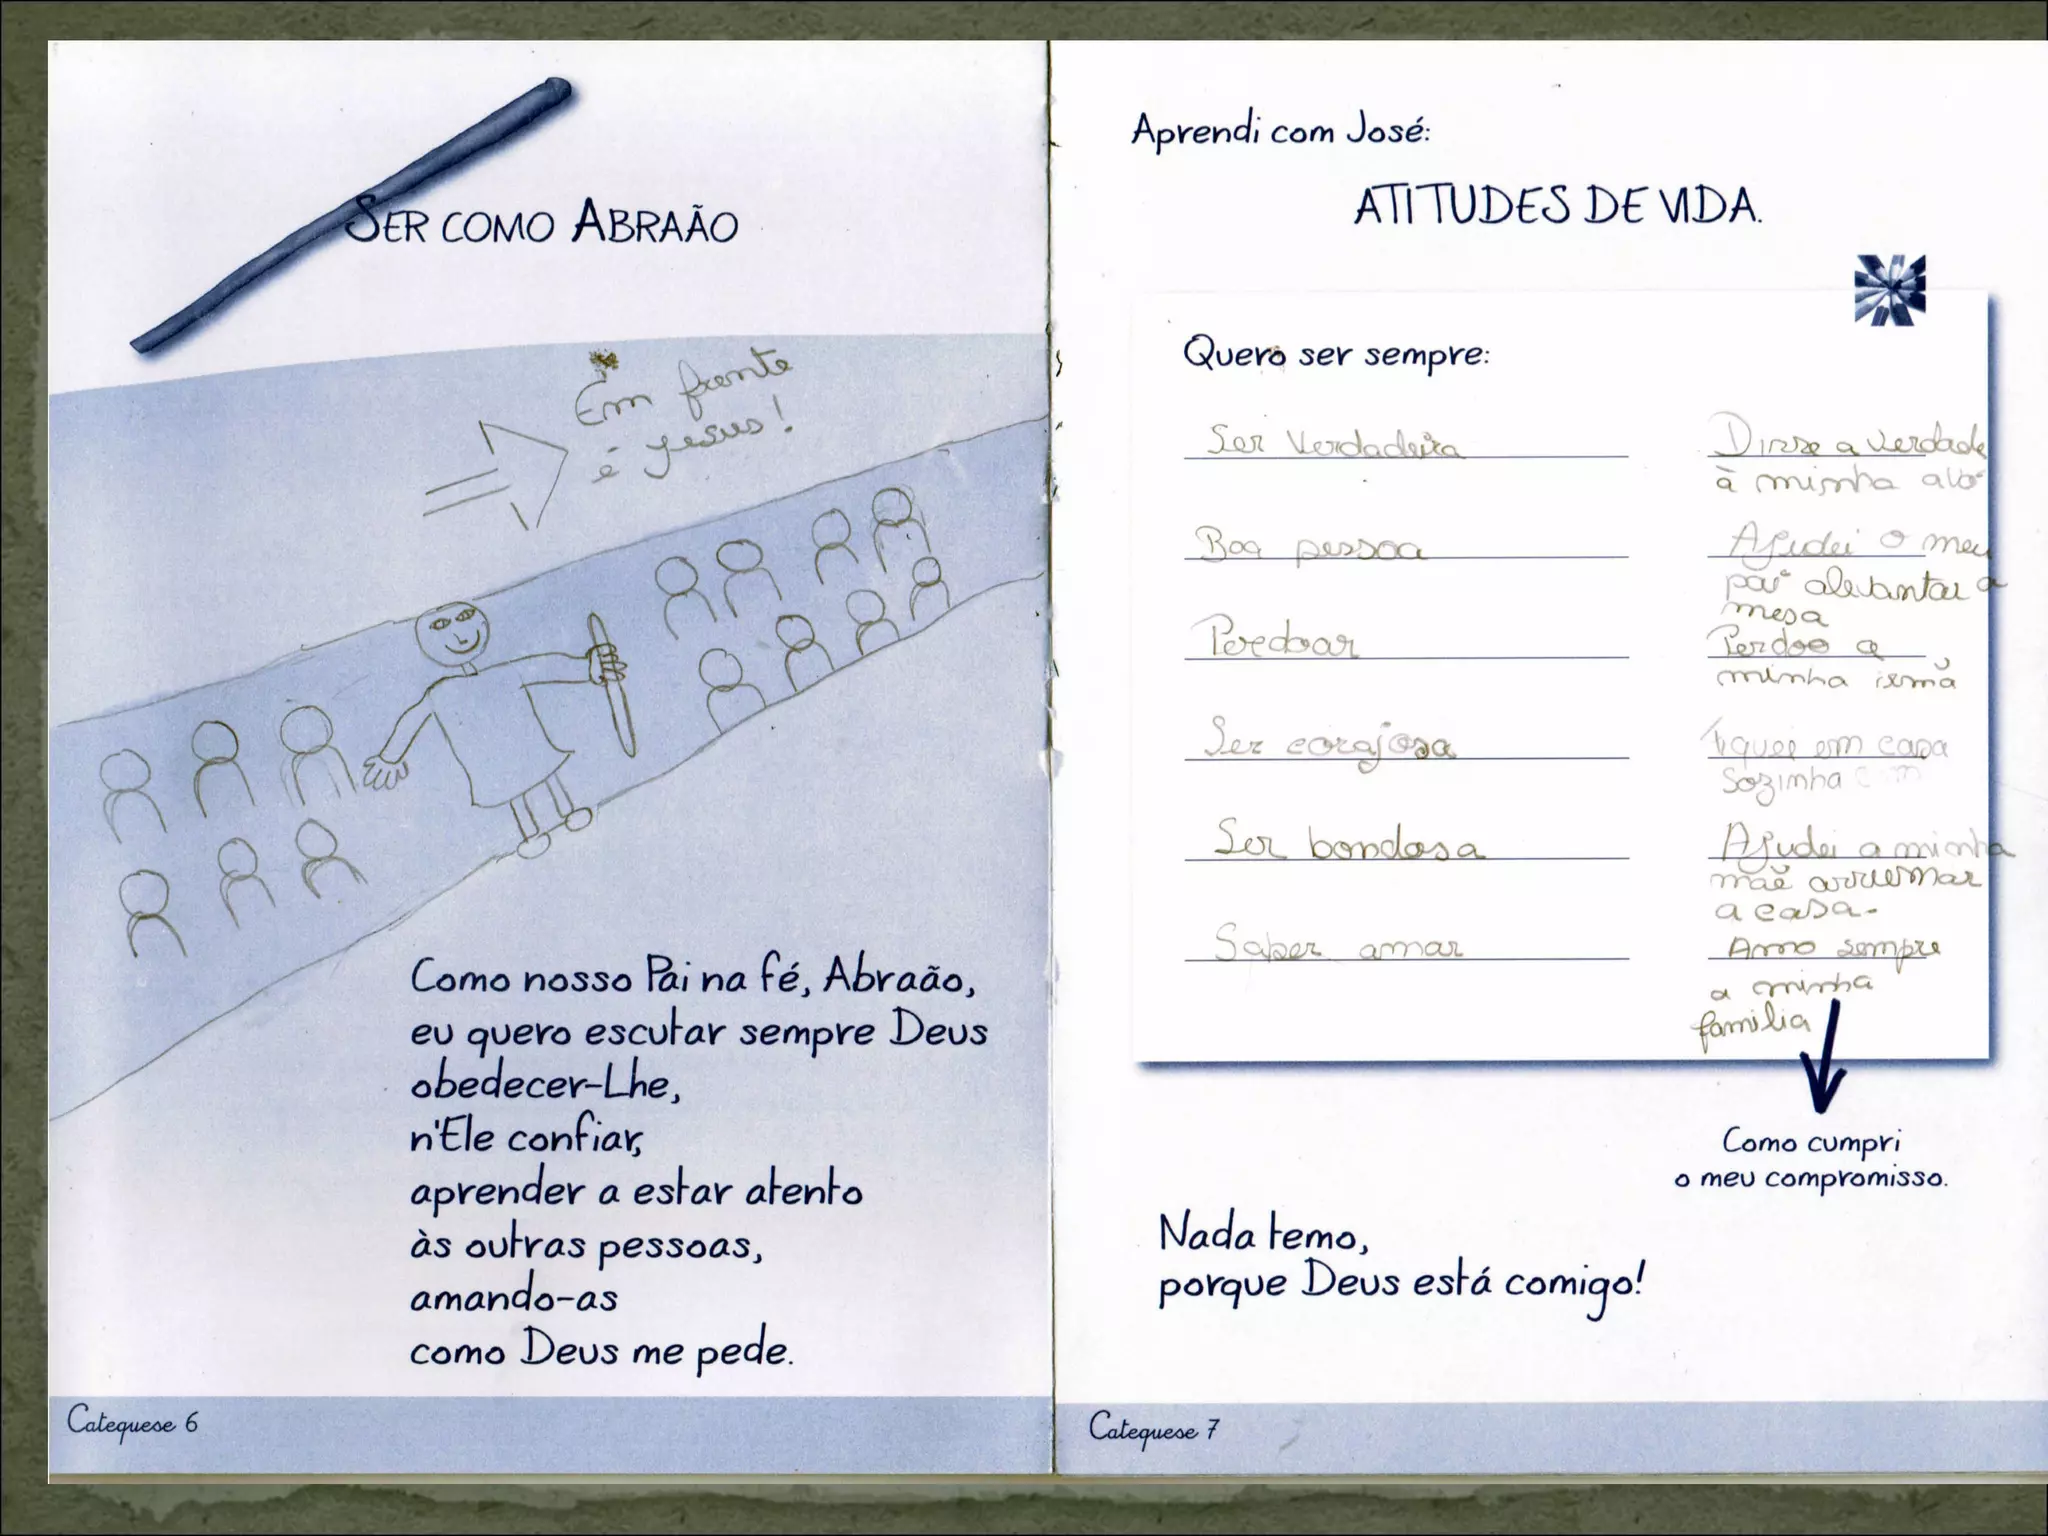 SER COMO ABRAÃO
Em frente
é Jesus!
Como nosso Pai na fé, Abraão,
eu quero escutar sempre Deus
obedecer-Lhe,
n'Ele confiar,
aprender a estar atento
às outras pessoas,
amando-as
como Deus me pede.
Catequese 6
Aprendi com José:
ATITUDES DE VIDA.
Quero ser sempre:
Ser Verdadeira
Disse a verdade
à minha avó
Boa pessoa
Ajudei o meu
pai alevantar a
mesa
Perdoar
Perdoo a
minha irmã
Ser corajosa
Fiquei em casa
Sozinha
Ser bondosa
Ajudei a minha
mãe arrumar
a casa.
Saber amar
Amo sempre
a minha
familia
Como cumpri
o meu compromisso.
Nada temo,
porque Deus está comigo!
Catequese 7